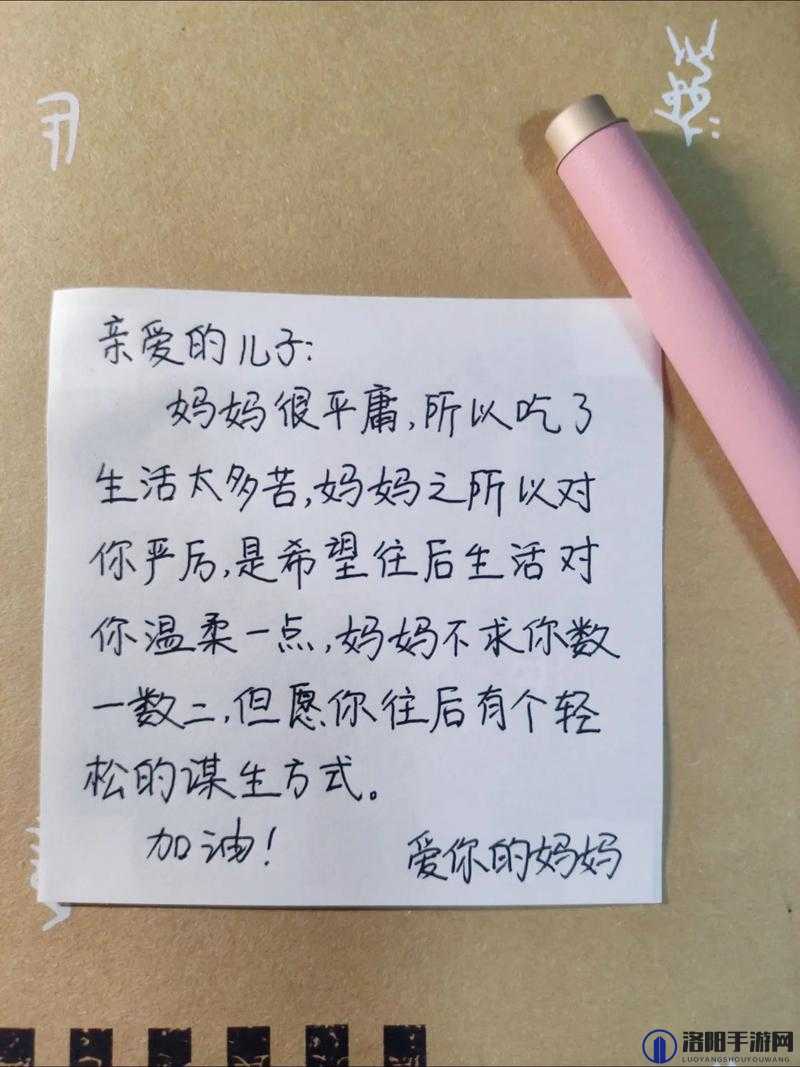 亲爱的儿子:
妈妈很平庸,所以吃了
生活太多苦,妈妈之所以对
你严厉,是希望往后生活对
你温柔一点,妈妈不求你数
一数二,但愿你往后有个轻
松的谋生方式。
加油!
爱你的妈妈
洛阳手游网
LUOYANGSHOUYOUWANG